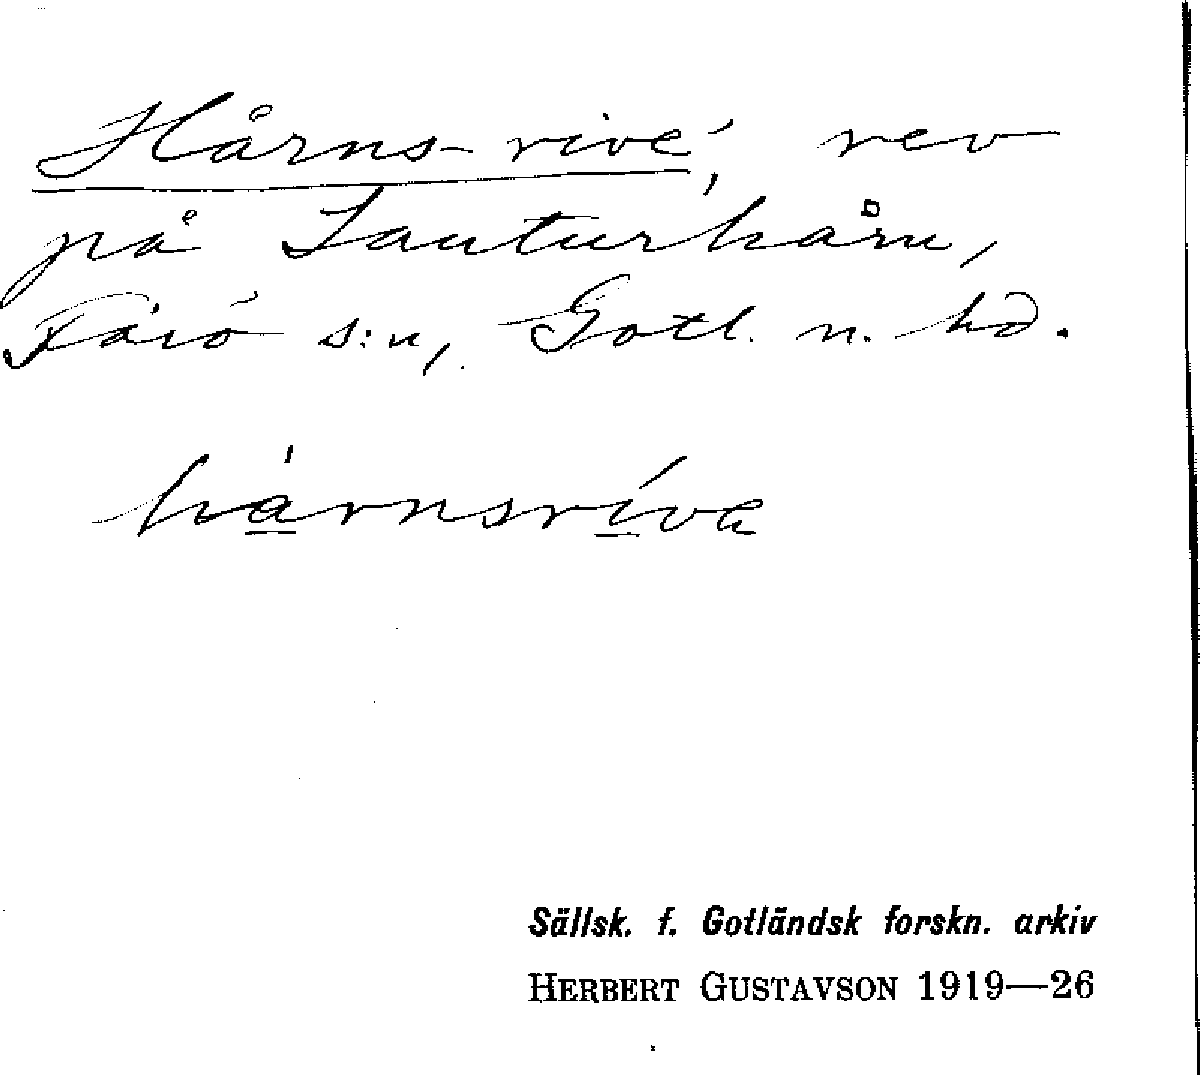 Hårns-rive', rev
på Lauturhårn,
Fårö s:n, Gotl. n. hd.
hårnsríva
Sällsk. f. Gotländsk forskn. arkiv
HERBERT GUSTAVSON 1919—26